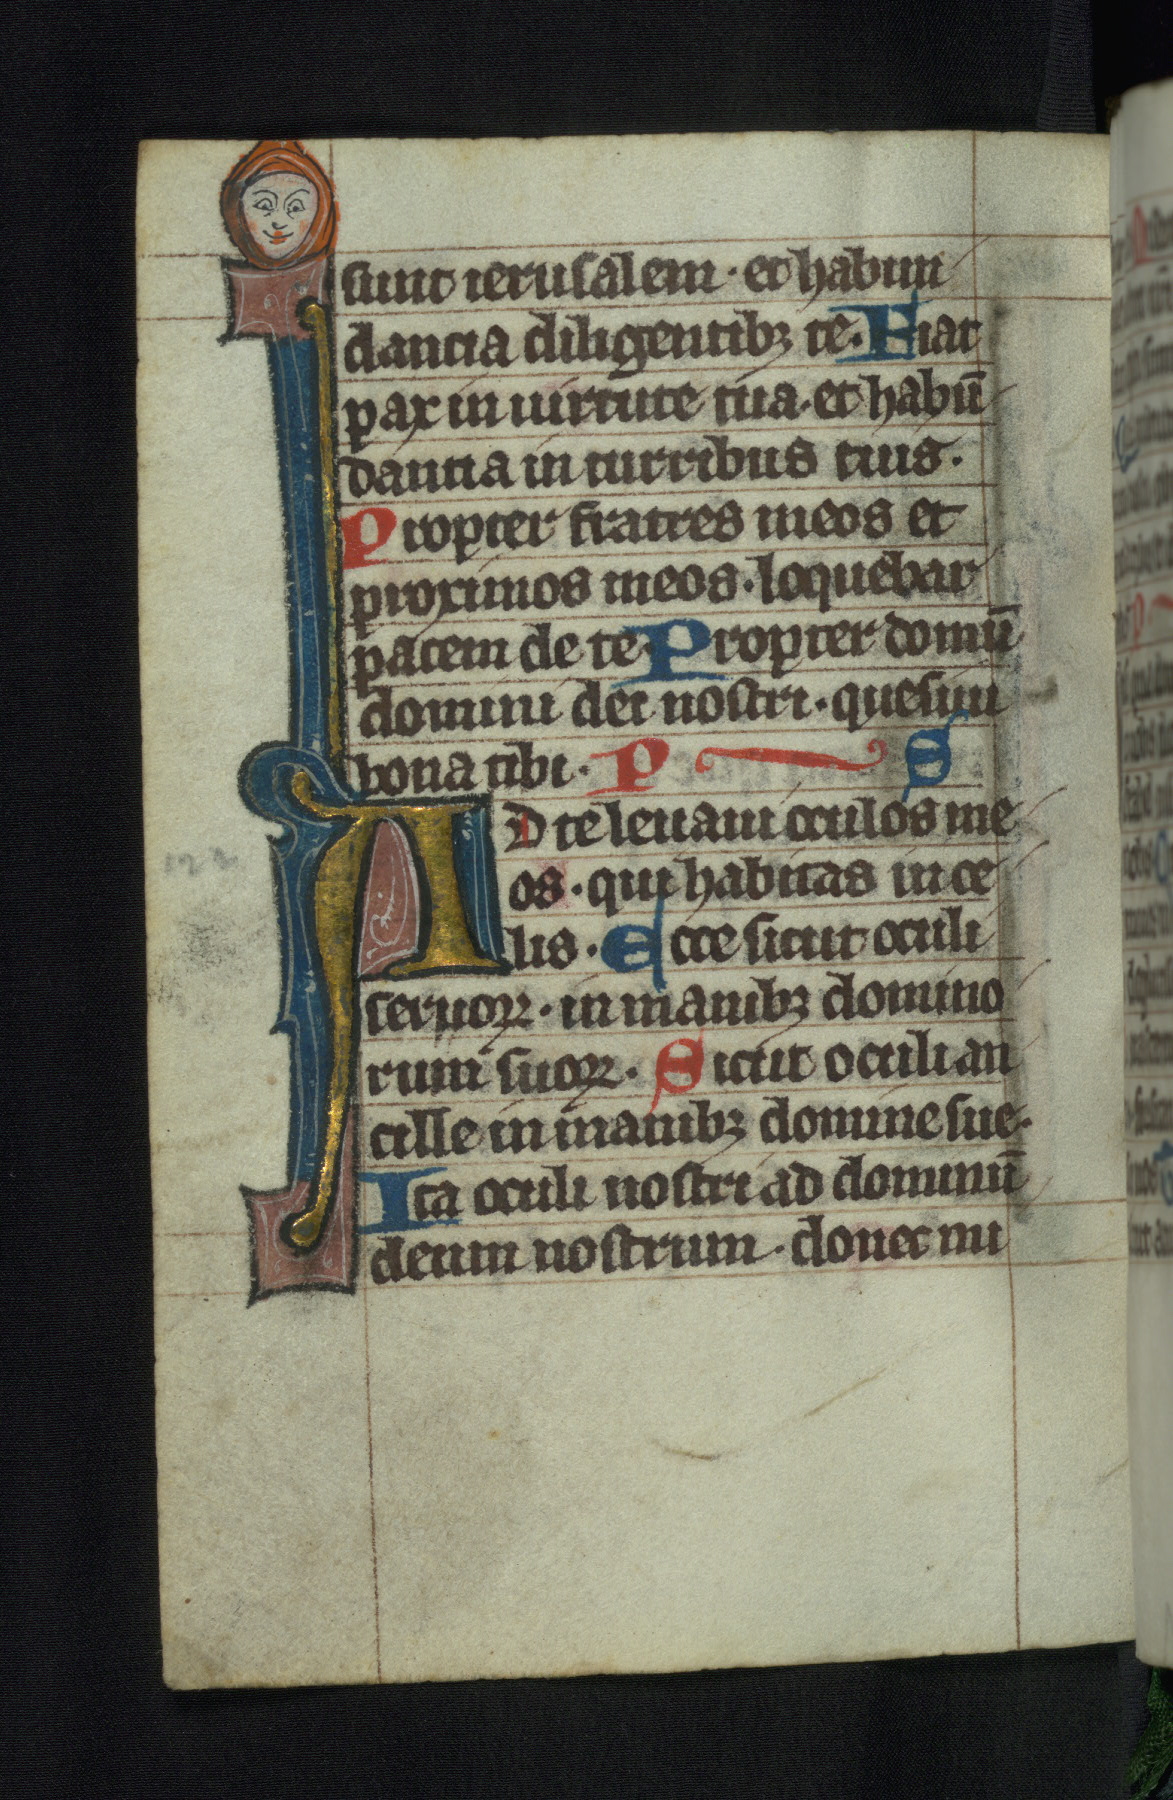 sunt ierusalem · et habun
dancia diligentibꝫ te. Fiat
pax in uirtute tua · et habū
dantia in turribus tuis.
Propter fratres meos et
proximos meos · loquebar
pacem de te. Propter domū
domini dei nostri · quesiui
bona tibi · P S
AD te leuaui oculos me
os · qui habitas in ce
lis · Ecce sicut oculi
seruoꝝ · in manibꝫ domino
rum suoꝝ · Sicut oculi an
cille in manibꝫ domine sue ·
Ita oculi nostri ad dominū
deum nostrum · donec mi